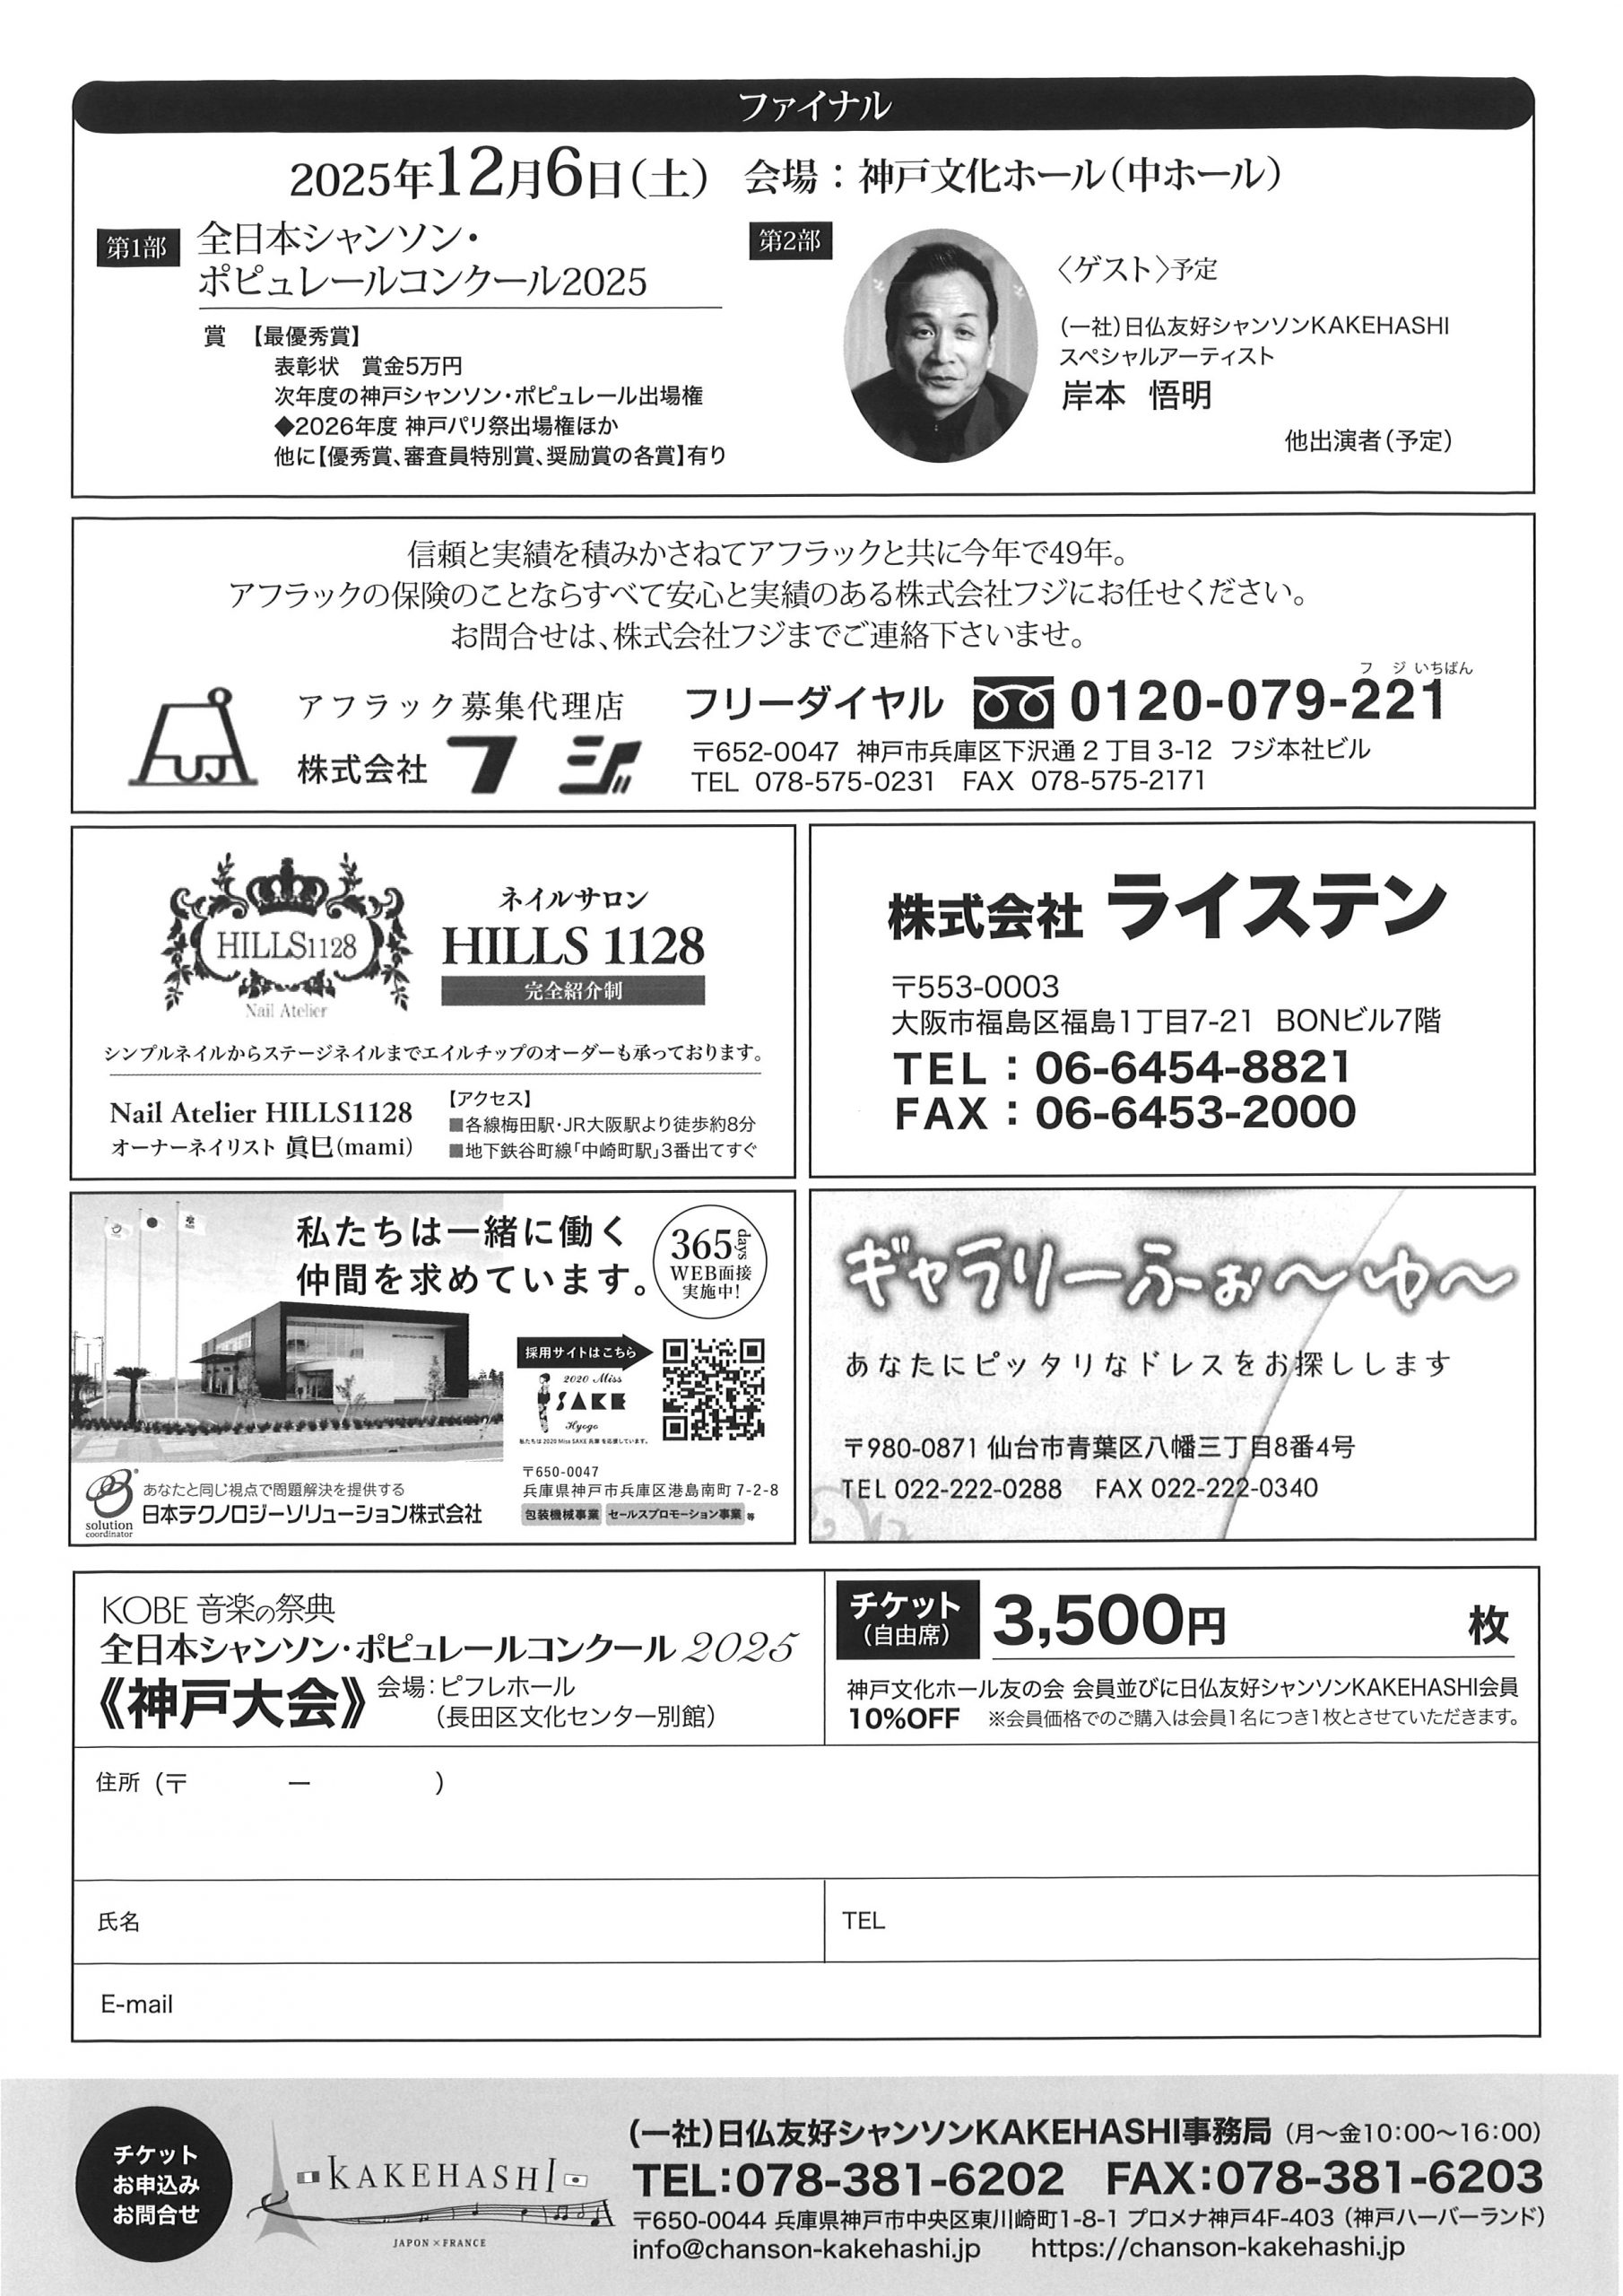 ファイナル
2025年12月6日(土) 会場：神戸文化ホール(中ホール)
第1部
全日本シャンソン・
ポピュレールコンクール2025
賞 【最優秀賞】
表彰状　賞金5万円
次年度の神戸シャンソン・ポピュレール出場権
◆2026年度 神戸パリ祭出場権ほか
他に【優秀賞、審査員特別賞、奨励賞の各賞】有り
第2部
〈ゲスト〉予定
(一社)日仏友好シャンソンKAKEHASHI
スペシャルアーティスト
岸本 悟明
他出演者(予定)
信頼と実績を積みかさねてアフラックと共に今年で49年。
アフラックの保険のことならすべて安心と実績のある株式会社フジにお任せください。
お問合せは、株式会社フジまでご連絡下さいませ。
FUJI
アフラック募集代理店
株式会社 フジ
フ ジ いちばん
フリーダイヤル 0120-079-221
〒652-0047 神戸市兵庫区下沢通2丁目3-12 フジ本社ビル
TEL 078-575-0231 FAX 078-575-2171
HILLS1128
Nail Atelier
ネイルサロン
HILLS 1128
完全紹介制
シンプルネイルからステージネイルまでエイルチップのオーダーも承っております。
Nail Atelier HILLS1128
オーナーネイリスト 眞巳(mami)
【アクセス】
■各線梅田駅・JR大阪駅より徒歩約8分
■地下鉄谷町線「中崎町駅」3番出てすぐ
株式会社 ライステン
〒553-0003
大阪市福島区福島1丁目7-21 BONビル7階
TEL：06-6454-8821
FAX：06-6453-2000
私たちは一緒に働く
仲間を求めています。
365days
WEB面接
実施中!
採用サイトはこちら
2020 Miss
SAKE
Hyogo
私たちは2020 Miss SAKE 兵庫を応援しています。
solution
coordinator
あなたと同じ視点で問題解決を提供する
日本テクノロジーソリューション株式会社
〒650-0047
兵庫県神戸市兵庫区港島南町7-2-8
包装機械事業 セールスプロモーション事業 等
ギャラリーふぉ〜ゆ〜
あなたにピッタリなドレスをお探しします
〒980-0871 仙台市青葉区八幡三丁目8番4号
TEL 022-222-0288 FAX 022-222-0340
KOBE 音楽の祭典
全日本シャンソン・ポピュレールコンクール 2025
《神戸大会》 会場：ピフレホール
(長田区文化センター別館)
チケット
(自由席)
3,500円 枚
神戸文化ホール友の会 会員並びに日仏友好シャンソンKAKEHASHI会員
10%OFF ※会員価格でのご購入は会員1名につき1枚とさせていただきます。
住所 (〒 ー )
氏名
TEL
E-mail
チケット
お申込み
お問合せ
KAKEHASHI
JAPON×FRANCE
(一社)日仏友好シャンソンKAKEHASHI事務局 (月〜金10:00〜16:00)
TEL:078-381-6202 FAX:078-381-6203
〒650-0044 兵庫県神戸市中央区東川崎町1-8-1 プロメナ神戸4F-403 (神戸ハーバーランド)
info@chanson-kakehashi.jp https://chanson-kakehashi.jp